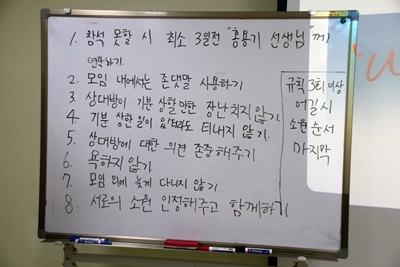 1. 참석 못할 시 최소 3일전 "홍용기 선생님"께
연락하기.
2. 모임 내에서는 존댓말 사용하기
3. 상대방이 기분 상할만한 장난 치지 않기.
4. 기분 상한 일이 있더라도 티내지 않기.
5. 상대방에 대한 의견 존중해주기
6. 욕하지 않기
7. 모임 외에 늦게 다니지 않기
8. 서로의 소원 인정해주고 함께하기
규칙 3회 이상
어길시
소원 순서
마지막